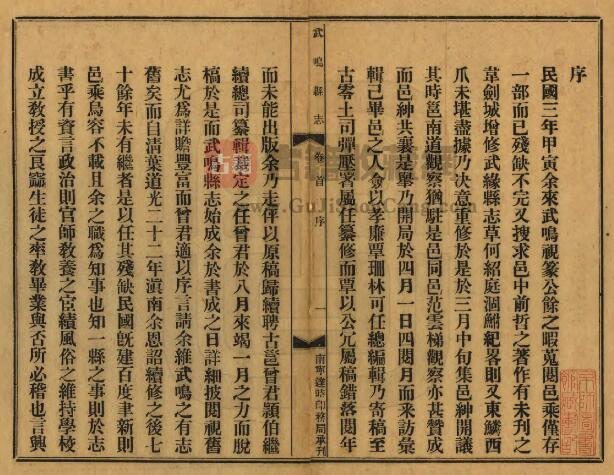 序
民國三年甲寅余來武鳴視篆公餘之暇蒐閱邑乘僅存
一部而已殘缺不完又搜求邑中前哲之著作有未刊之
韋劍城增修武緣縣志草何紹庭涸鮒紀畧則又東鱗西
爪未堪盡據乃決意重修於是於三月中旬集邑紳開議
其時邕南道觀察猶駐是邑同邑范雲梯觀察亦甚贊成
而邑紳共襄是舉乃開局於四月一日四閱月而來訪彙
輯已畢邑之人僉以孝廉覃珊林可任總編輯乃寄稿至
古零土司彈壓署屬任纂修而覃以公冗屬稿錯落閱年
武鳴縣志
卷首 序
一
南寧達時印務局承刊
而未能出版余乃走伻以原稿歸續聘古邕曾君穎伯繼
續總司纂輯裁定之任曾君於八月來竭一月之力而脫
稿於是而武鳴縣志始成余於書成之日詳細披閱視舊
志尤爲詳贍豐富而曾君適以序言請余維武鳴之有志
舊矣而自清葉道光二十二年滇南余恩詔續修之後七
十餘年未有繼者是以任其殘缺民國旣建百度聿新則
邑乘烏容不載且余之職爲知事也知一縣之事則於志
書乎有資言政治則官師敎養之宦績風俗之維持學校
成立敎授之良窳生徒之率敎畢業與否所必稽也言興
古籍收藏網
www.GuJiShouCang.Com